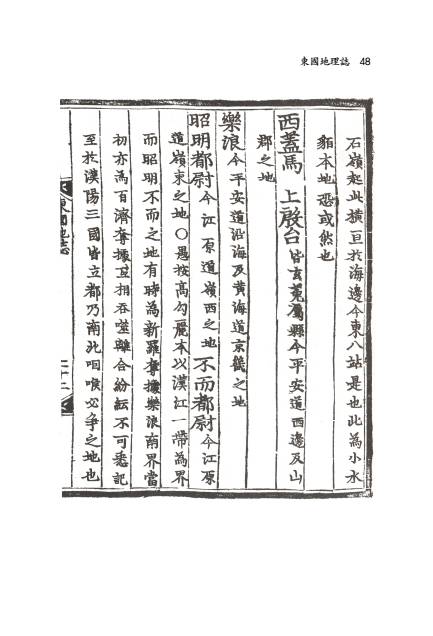 東國地理誌 48
石嶺起此橫亘於海邊今東八站是也此為小水
貊本地恐或然也
西蓋馬 上殷台 皆玄菟屬縣今平安道西邊及山
郡之地
樂浪 今平安道沿海及黃海道京畿之地
昭明都尉 今江原道嶺西之地 不而都尉 今江原
道嶺東之地〇愚按高勾麗本以漢江一帶為界
而昭明不而之地有時為新羅奪據樂浪南界當
初亦為百濟奪據互相吞噬離合紛紜不可悉記
至於漢陽三國皆立都乃南北咽喉必爭之地也
東國地志
二十二